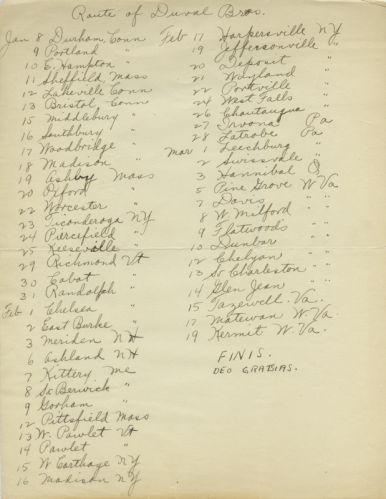 Route of Duval Bros.
Jan 8 Durham, Conn
9 Portland "
10 E. Hampton "
11 Sheffield, Mass
12 Lakeville Conn
13 Bristol, Conn
15 Middlebury "
16 Southbury "
17 Woodbridge "
18 Madison "
19 Ashby Mass
20 Oxford "
22 Worcester "
23 Ticonderoga NY
24 Piercefield "
25 Keeseville "
29 Richmond Vt
30 Cabot "
31 Randolph "
Feb 1 Chelsea "
2 East Burke "
3 Meriden NH
6 Ashland NH
7 Kittery Me
8 So Berwick "
9 Gorham "
12 Pittsfield Mass
13 W. Pawlet Vt
14 Pawlet "
15 W Carthage NY
16 Madison NY
Feb 17 Harpersville NY
19 Jeffersonville "
20 Deposit "
21 Wayland "
22 Portville "
24 West Falls "
26 Chautauqua "
27 Irvona Pa
28 Latrobe Pa
Mar 1 Leechburg "
2 Swissvale "
3 Hannibal O
5 Pine Grove W Va
7 Davis " "
8 W Milford " "
9 Flatwoods " "
10 Dunbar " "
12 Chelyan " "
13 So Charleston " "
14 Glen Jean " "
15 Tazewell. Va.
17 Matewan W. Va
19 Kermit W. Va.
FINIS.
DEO GRATSIAS.